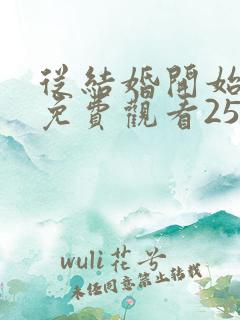 從結婚開始
免費觀看25
wuli花兮
未經同意禁止轉載